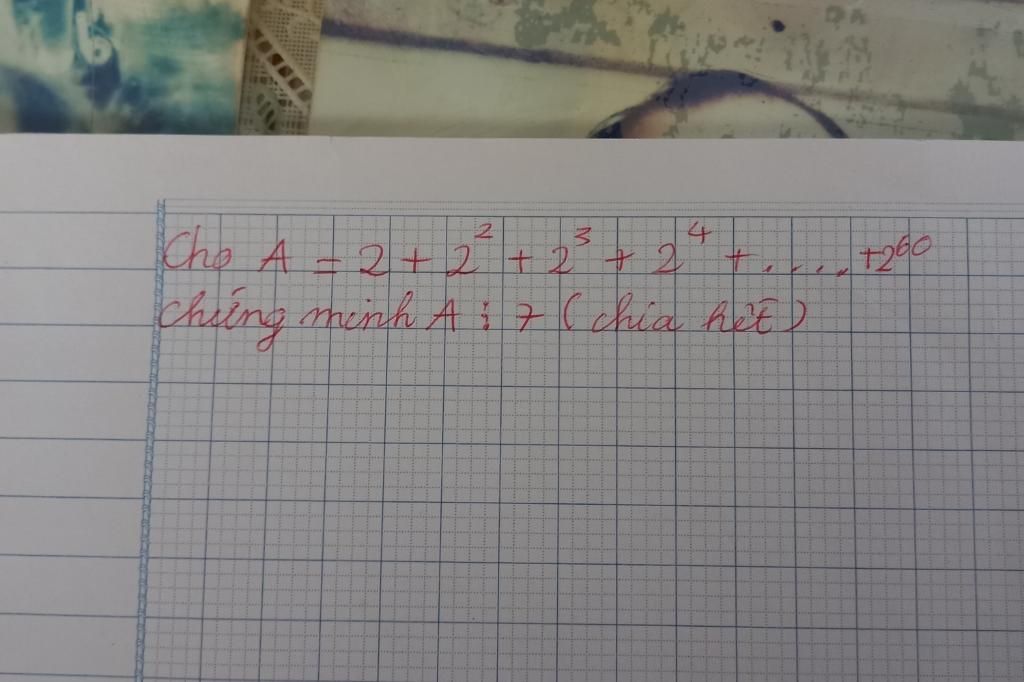 Cho A = 2 + 2² + 2³ + 2⁴ + ..... +2⁶⁰
chứng minh A ⋮ 7 ( chia hết )